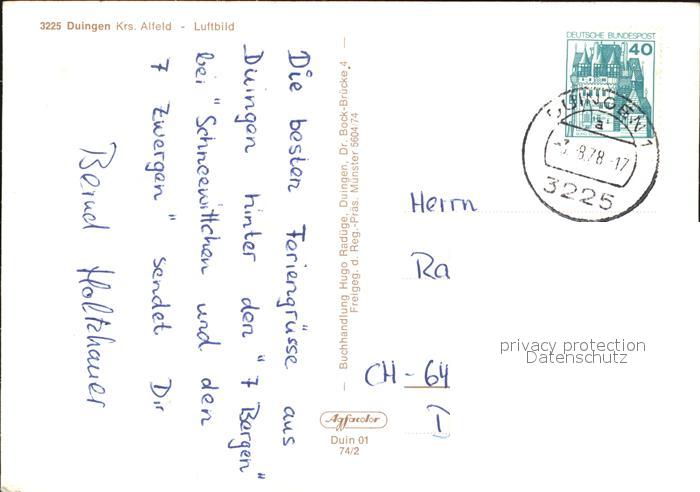 3225 Duingen Krs. Alfeld - Luftbild
Die besten Feriengrüsse aus
Duingen hinter den "7 Bergen"
bei "Schneewittchen und den
7 Zwergen" sendet Dir
Bernd Holtzhauer
Buchhandlung Hugo Radüge, Duingen, Dr. Bock-Brücke 4
Freigeg. d. Reg.-Präs. Münster 5604/74
Agfacolor
Duin 01
74/2
DEUTSCHE BUNDESPOST
40
DUINGEN 1
a
-3.-8.78.-17
3225
Herrn
Ra
CH-64
privacy protection
Datenschutz